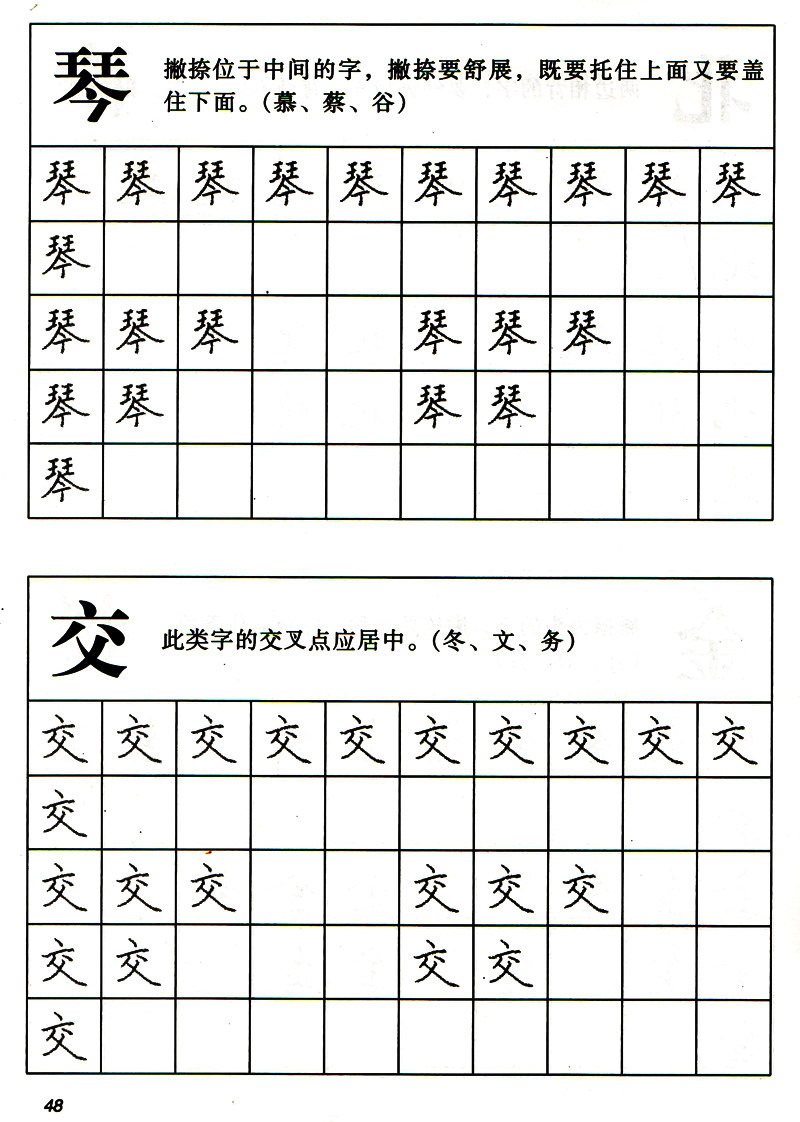 琴
撇捺位于中间的字，撇捺要舒展，既要托住上面又要盖
住下面。（慕、蔡、谷）
琴 琴 琴 琴 琴 琴 琴 琴 琴 琴
琴
琴 琴 琴 琴 琴 琴
琴 琴 琴 琴
琴
交
此类字的交叉点应居中。（冬、文、务）
交 交 交 交 交 交 交 交 交 交
交
交 交 交 交 交 交
交 交 交 交
交
48